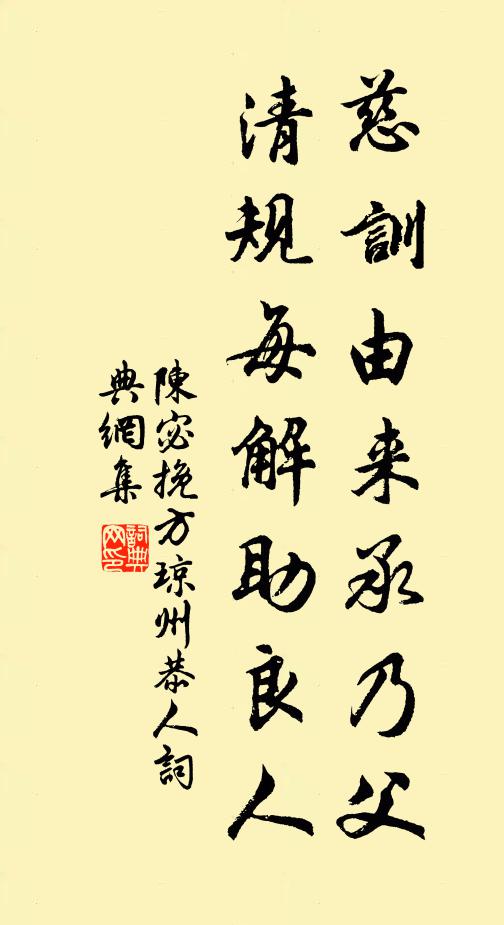 慈訓由来承乃父
清規每解助良人
陳宓挽方琼州恭人詞
典網集
詞典
网印